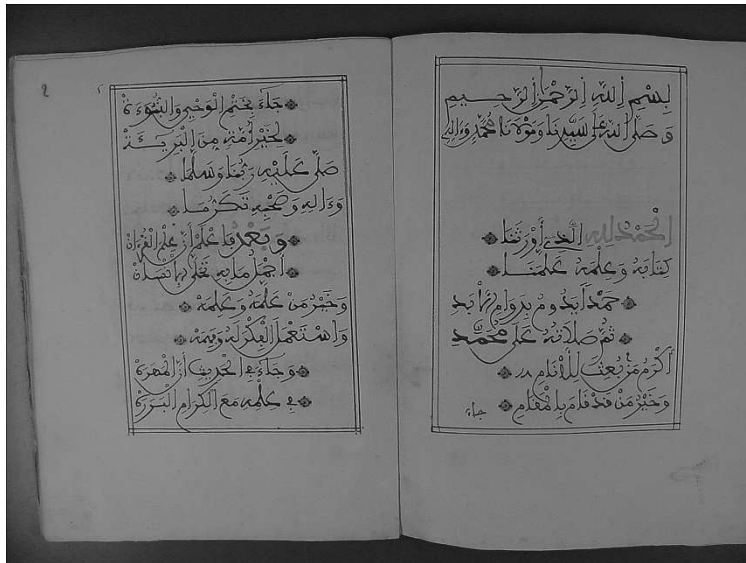 بسم الله الرحمن الرحيم
و صلى الله على سيدنا ومولانا محمد وءاله
الحمد لله الذي أورثنا
كتابه وعلمه علمنا
حمدا يدوم بدوام الأبد
ثم صلاته على محمد
أكرم من بعث للأنام
وخير من قد قام بالمقام
جاء
2
جاء بختم الوحي والنبوءة
لخير أمة من البرية
صلى عليه ربنا وسلما
وءاله وصحبه تكرما
وبعد فاعلم أن علم القرءان
أجمل ما به تحلى الإنسان
وخير من علمه وعلمه
واستعمل الفكر له وفهمه
وجاء في الحديث أن المهرة
في علمه مع الكرام البررة